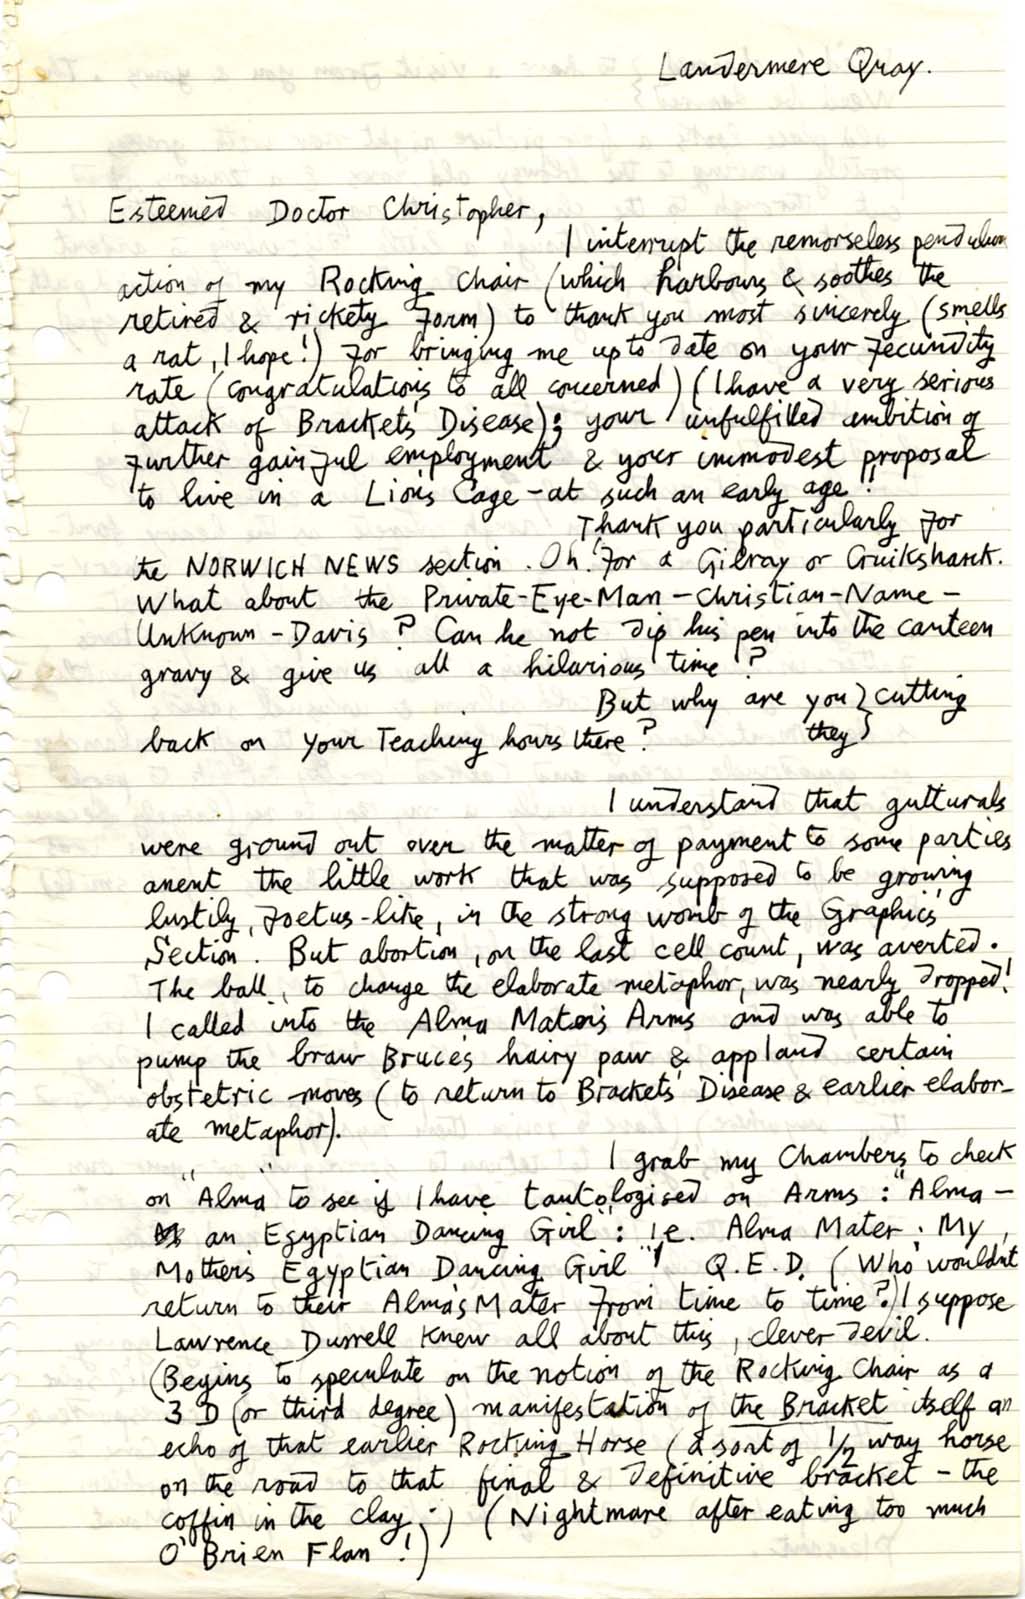 Landermere Quay.
Esteemed Doctor Christopher,
I interrupt the remorseless pendulum
action of my Rocking Chair (which harbours & soothes the
retired & rickety form) to thank you most sincerely (smells
a rat, I hope!) for bringing me up to date on your fecundity
rate (congratulations to all concerned) (I have a very serious
attack of Brackets Disease); your unfulfilled ambition of
further gainful employment & your immodest proposal
to live in a Lions Cage - at such an early age!
Thank you particularly for
the NORWICH NEWS section. Oh! for a Gilray or Cruikshank.
What about the Private-Eye-Man-Christian-Name-
Unknown-Davis? Can he not dip his pen into the canteen
gravy & give us all a hilarious time?
But why are you } cutting
they }
back on your Teaching hours there?
I understand that gutturals
were ground out over the matter of payment to some parties
anent the little work that was supposed to be growing
lustily, foetus-like, in the strong womb of the Graphics
Section. But abortion, on the last cell count, was averted.
The ball, to change the elaborate metaphor, was nearly dropped!
I called into the Alma Maters Arms and was able to
pump the braw Bruce's hairy paw & applaud certain
obstetric moves (to return to Brackets Disease & earlier elabor-
ate metaphor).
I grab my Chambers to check
on "Alma" to see if I have tautologised on Arms: "Alma -
an Egyptian Dancing Girl": i.e. Alma Mater: My
Mothers Egyptian Dancing Girl"! Q.E.D. (Who wouldnt
return to their Alma's Mater from time to time?) I suppose
Lawrence Durrell knew all about this, clever devil.
(Begins to speculate on the notion of the Rocking Chair as a
3D (or third degree) manifestation of the Bracket itself an
echo of that earlier Rocking Horse (a sort of 1/2 way horse
on the road to that final & definitive bracket - the
coffin in the clay.) (Nightmare after eating too much
O'Brien Flan!)